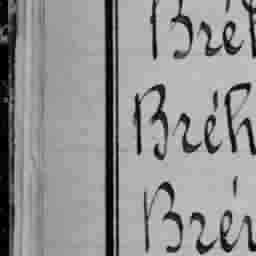 Bré
Bréh
Bré